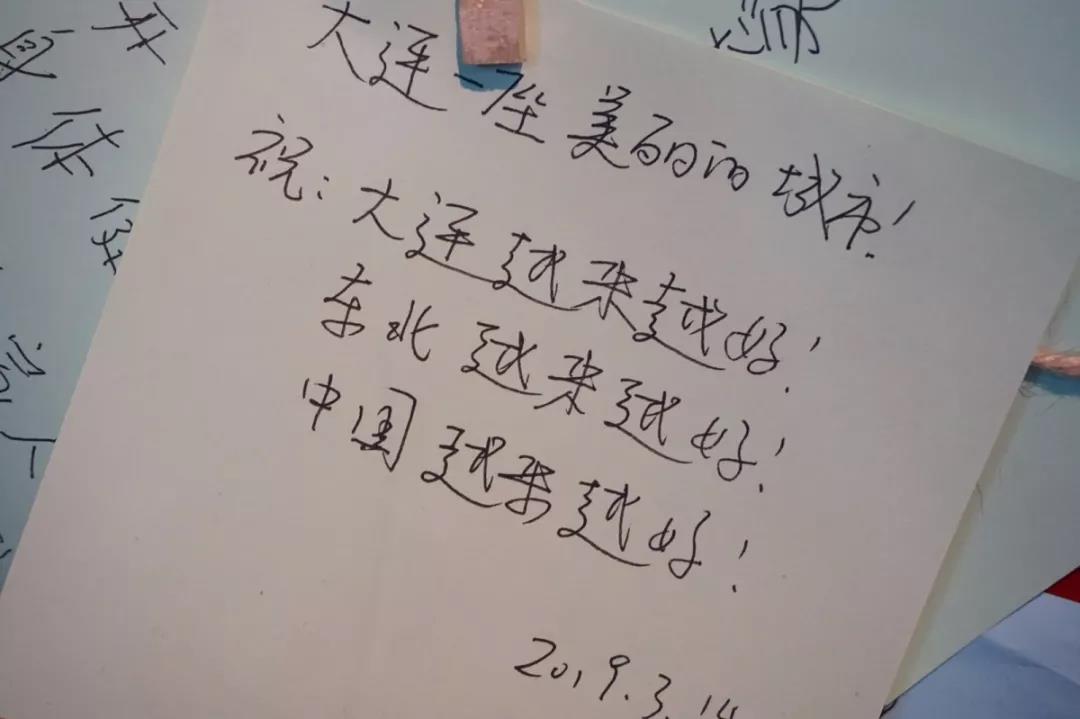 大连一座美丽的城市!
祝:大连越来越好!
东北越来越好!
中国越来越好!
2019.3.14